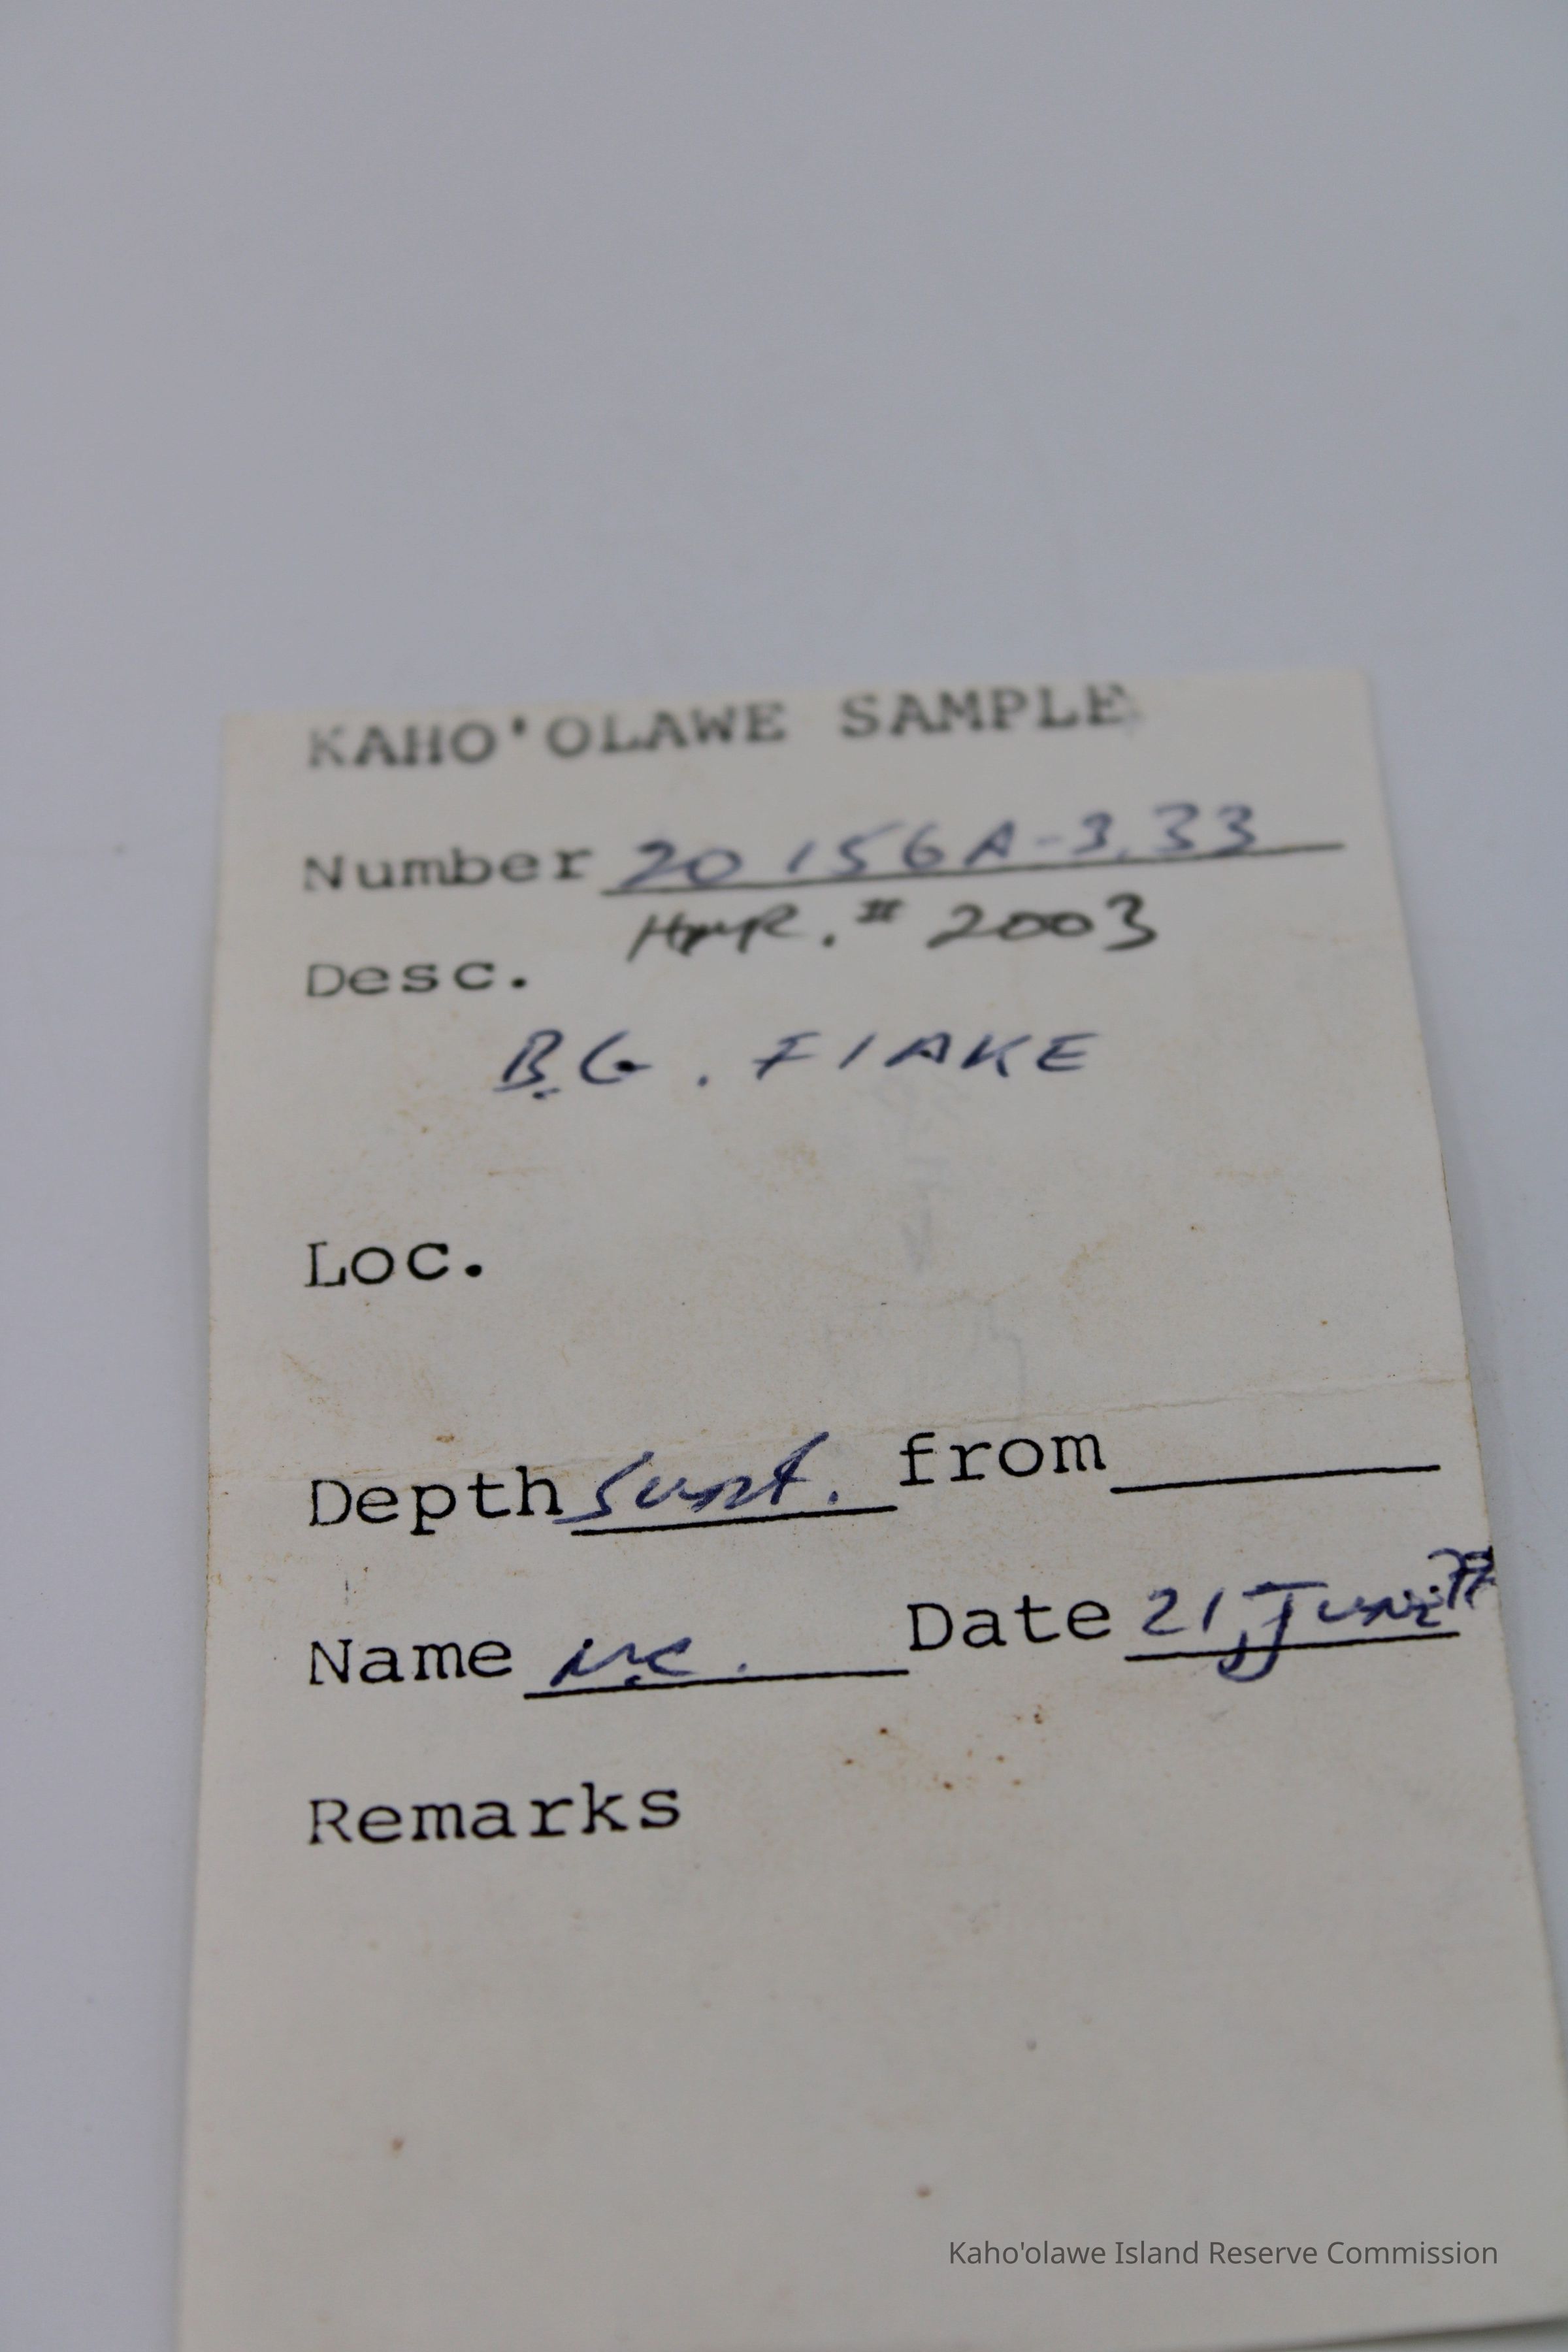 KAHO'OLAWE SAMPLE
Number 20156A-3.33
HYR. # 2003
Desc.
B.G. FlAKE
Loc.
Depth Surf. from
Name N.C. Date 21 June 77
Remarks
Kaho'olawe Island Reserve Commission